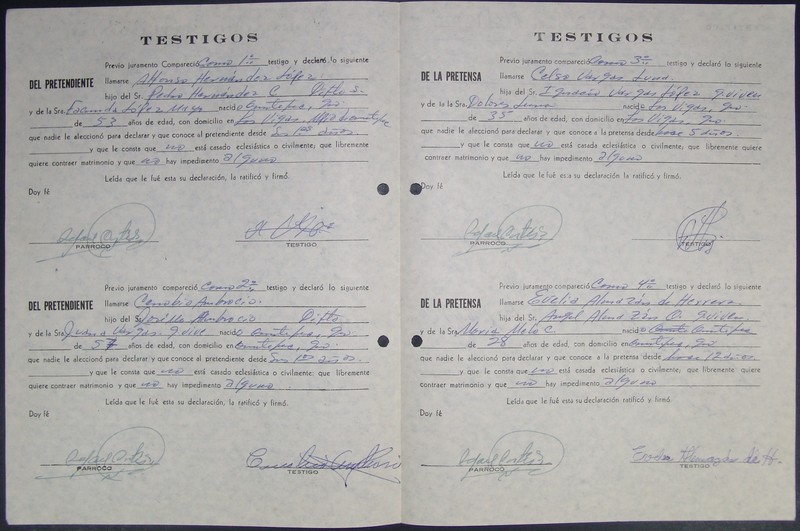 TESTIGOS
Previo juramento Compareció Como 1º testigo y declaró lo siguiente
DEL PRETENDIENTE llamarse Alfonso Hernández López.
hijo del Sr. Pedro Hernández C
y de la Sra. López nacido
de 53 años de edad, con domicilio en Las Vigas,
que nadie le aleccionó para declarar y que conoce al pretendiente desde Sus 1ros años.
y que le consta que no está casado eclesiástica o civilmente; que libremente
quiere contraer matrimonio y que no hay impedimento alguno
Leída que le fué esta su declaración, la ratificó y firmó.
Doy fé
PARROCO
TESTIGO
Previo juramento compareció Como 2º testigo y declaró lo siguiente
DEL PRETENDIENTE llamarse Cenobio Ambrocio.
hijo del Sr. Ambrocio
y de la Sra. Juana Vargas q vive nacido
de 57 años de edad, con domicilio en
que nadie le aleccionó para declarar y que conoce al pretendiente desde Sus 1ros años.
y que le consta que no está casado eclesiástica o civilmente: que libremente
quiere contraer matrimonio y que no hay impedimento alguno
Leída que le fué esta su declaración, la ratificó y firmó.
Doy fé
PARROCO
TESTIGO
TESTIGOS
Previo juramento compareció Como 3º testigo y declaró lo siguiente
DE LA PRETENSA llamarse Celso Vargas Luna.
hijo del Sr. Ignacio Vargas López q viven
y de la Sra. Dolores Luna nacido Las Vigas,
de 35 años de edad, con domicilio en Las Vigas,
que nadie le aleccionó para declarar y que conoce a la pretensa desde hace 5 años.
y que le consta que no está casada eclesiástica o civilmente; que libremente quiere
contraer matrimonio y que no hay impedimento alguno
Leída que le fué esta su declaración, la ratificó y firmó.
Doy fé
PARROCO
TESTIGO
Previo juramento compareció Como 4º testigo y declaró lo siguiente
DE LA PRETENSA llamarse Evelia Almazán de Herrera
hija del Sr. Angel Almazán O. q viven
y de la Sra. María Melo C. nacida
de 28 años de edad, con domicilio en
que nadie le aleccionó para declarar y que conoce a la pretensa desde hace 12 años.
y que le consta que no está casada eclesiástica o civilmente; que libremente quiere
contraer matrimonio y que no hay impedimento alguno
Leída que le fué esta su declaración, la ratificó y firmó.
Doy fé
Almazán de H.
PARROCO
TESTIGO